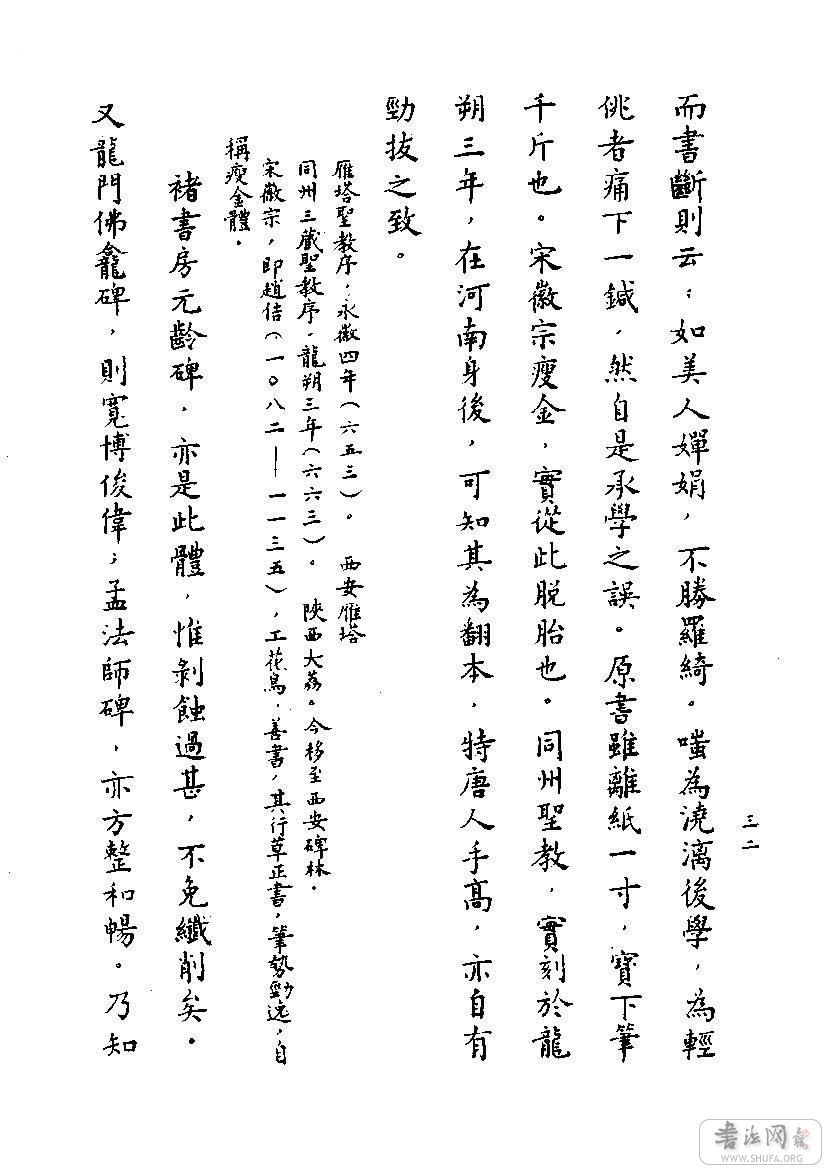 三二
而書斷則云：如美人嬋娟，不勝羅綺。嗤為澆漓後學，為輕
佻者痛下一鍼，然自是承學之誤。原書雖離紙一寸，實下筆
千斤也。宋徽宗瘦金，實從此脫胎也。同州聖教，實刻於龍
朔三年，在河南身後，可知其為翻本，特唐人手高，亦自有
勁拔之致。
雁塔聖教序，永徽四年（六五三）。西安雁塔
同州三藏聖教序，龍朔三年（六六三）。陝西大荔。今移至西安碑林。
宋徽宗，即趙佶（一〇八二——一一三五），工花鳥，善書，其行草正書，筆勢勁逸，自
稱瘦金體。
褚書房元齡碑，亦是此體，惟剝蝕過甚，不免纖削矣。
又龍門佛龕碑，則寬博俊偉；孟法師碑，亦方整和暢。乃知
書法网
WWW.SHUFA.ORG